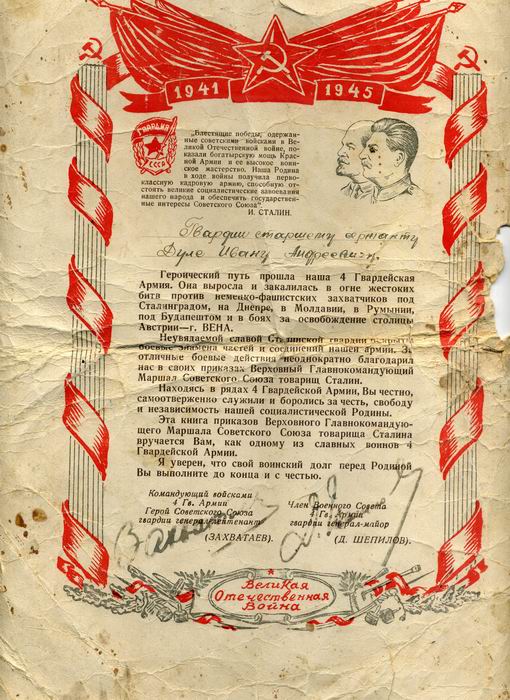 1941 1945
ГВАРДИЯ
СССР
„Блестящие победы, одержан-
ные советскими войсками в Ве-
ликой Отечественной войне, по-
казали богатырскую мощь Крас-
ной Армии и ее высокое воин-
ское мастерство. Наша Родина
в ходе войны получила перво-
классную кадровую армию, способную от-
стоять великие социалистические завоевания
нашего народа и обеспечить государствен-
ные интересы Советского Союза".
И. СТАЛИН.
Гвардии старшему сержанту
Дуле Ивану Андреевичу.
Героический путь прошла наша 4 Гвардейская
Армия. Она выросла и закалилась в огне жестоких
битв против немецко-фашистских захватчиков под
Сталинградом, на Днепре, в Молдавии, в Румынии,
под Будапештом и в боях за освобождение столицы
Австрии—г. ВЕНА.
Неувядаемой славой Сталинской гвардии покрыты
боевые знамена частей и соединений нашей армии. За
отличные боевые действия неоднократно благодарил
нас в своих приказах Верховный Главнокомандующий
Маршал Советского Союза товарищ Сталин.
Находясь в рядах 4 Гвардейской Армии, Вы честно,
самоотверженно служили и боролись за честь, свободу
и независимость нашей социалистической Родины.
Эта книга приказов Верховного Главнокомандую-
щего Маршала Советского Союза товарища Сталина
вручается Вам, как одному из славных воинов 4
Гвардейской Армии.
Я уверен, что свой воинский долг перед Родиной
Вы выполните до конца и с честью.
Командующий войсками
4 Гв. Армии
Герой Советского Союза
гвардии генерал-лейтенант
(ЗАХВАТАЕВ).
Член Военного Совета
4 Гв. Армии
гвардии генерал-майор
(Д. ШЕПИЛОВ).
Великая
Отечественная
Война